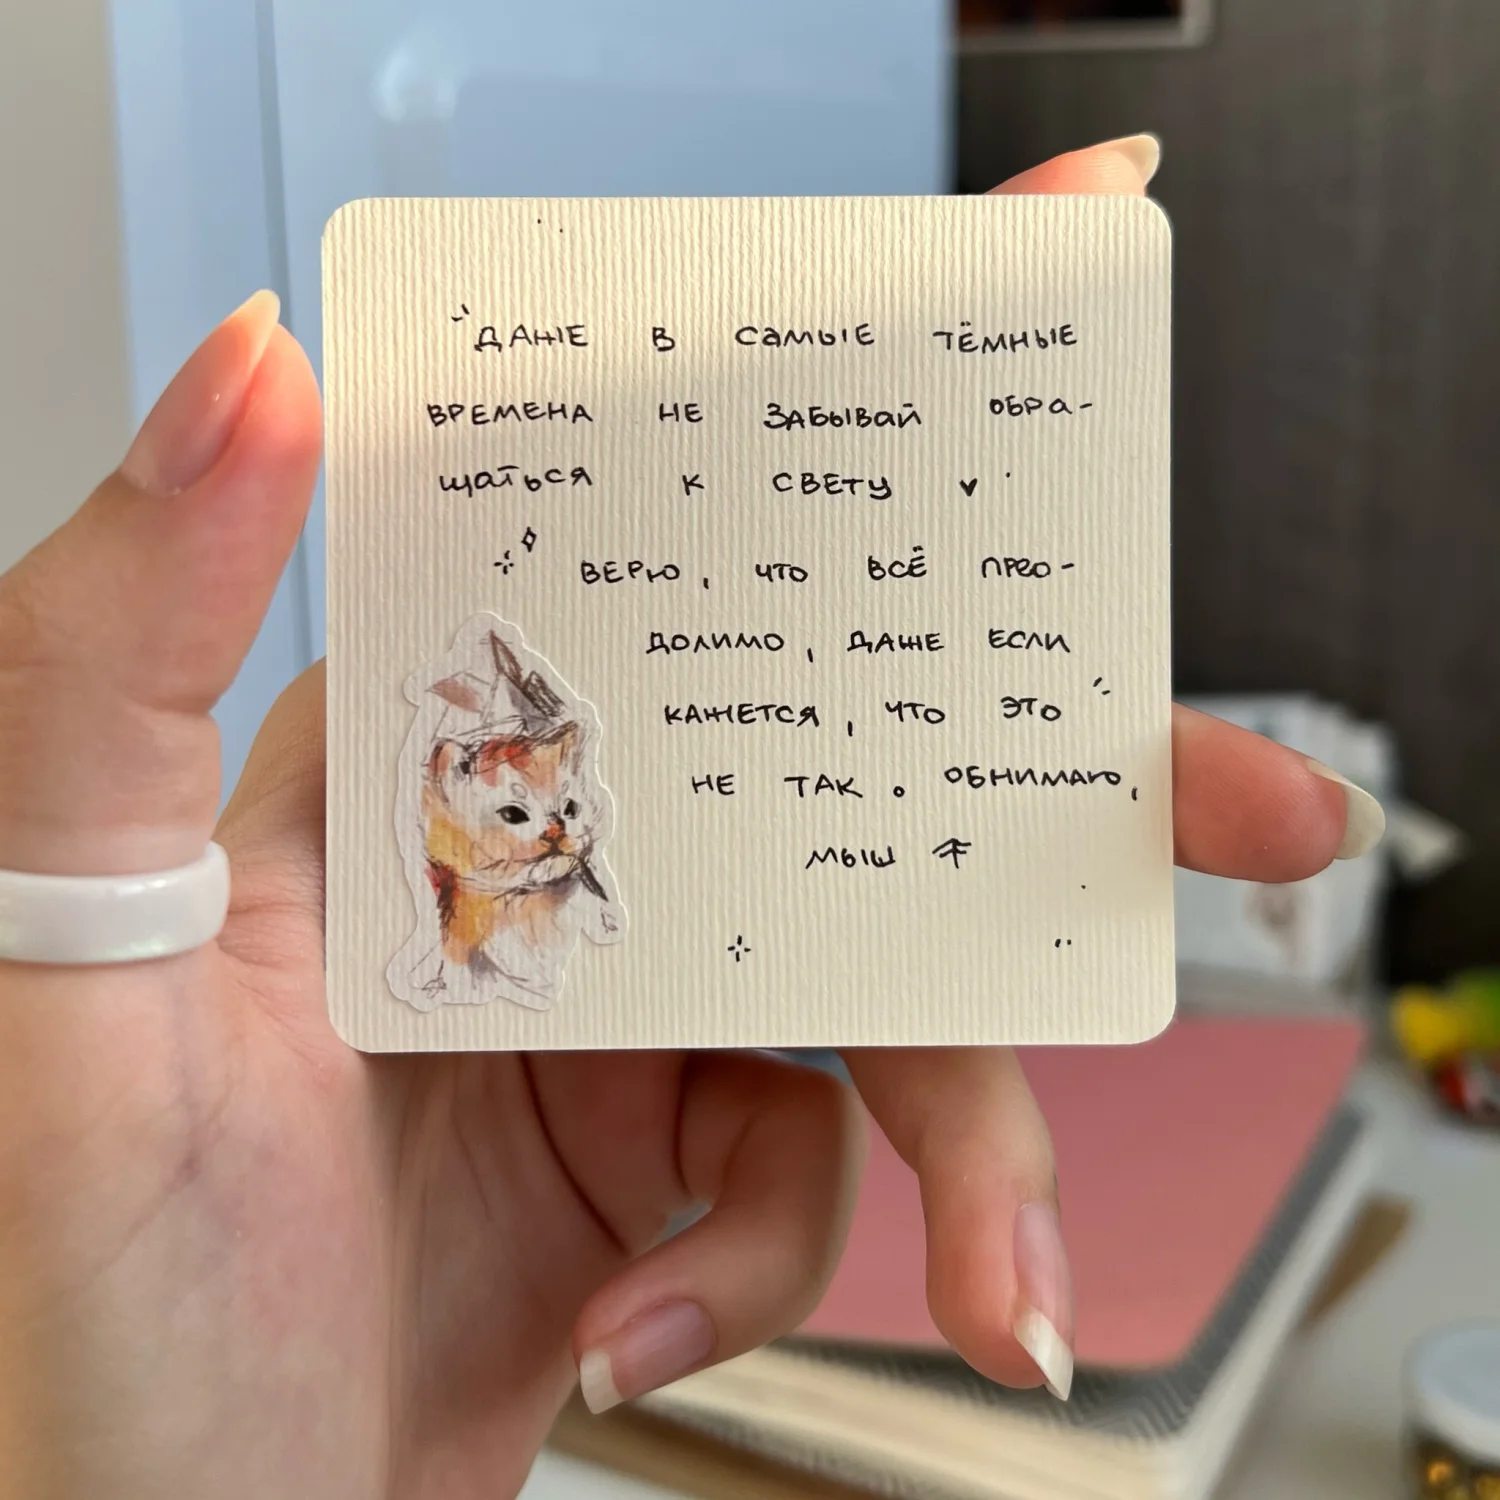 ДАЖЕ В САМЫЕ ТЁМНЫЕ
ВРЕМЕНА НЕ ЗАБЫВАЙ ОБРА-
ЩАТЬСЯ К СВЕТУ ♥
ВЕРЮ, ЧТО ВСЁ ПРЕО-
ДОЛИМО, ДАЖЕ ЕСЛИ
КАЖЕТСЯ, ЧТО ЭТО
НЕ ТАК. ОБНИМАЮ,
МЫШ